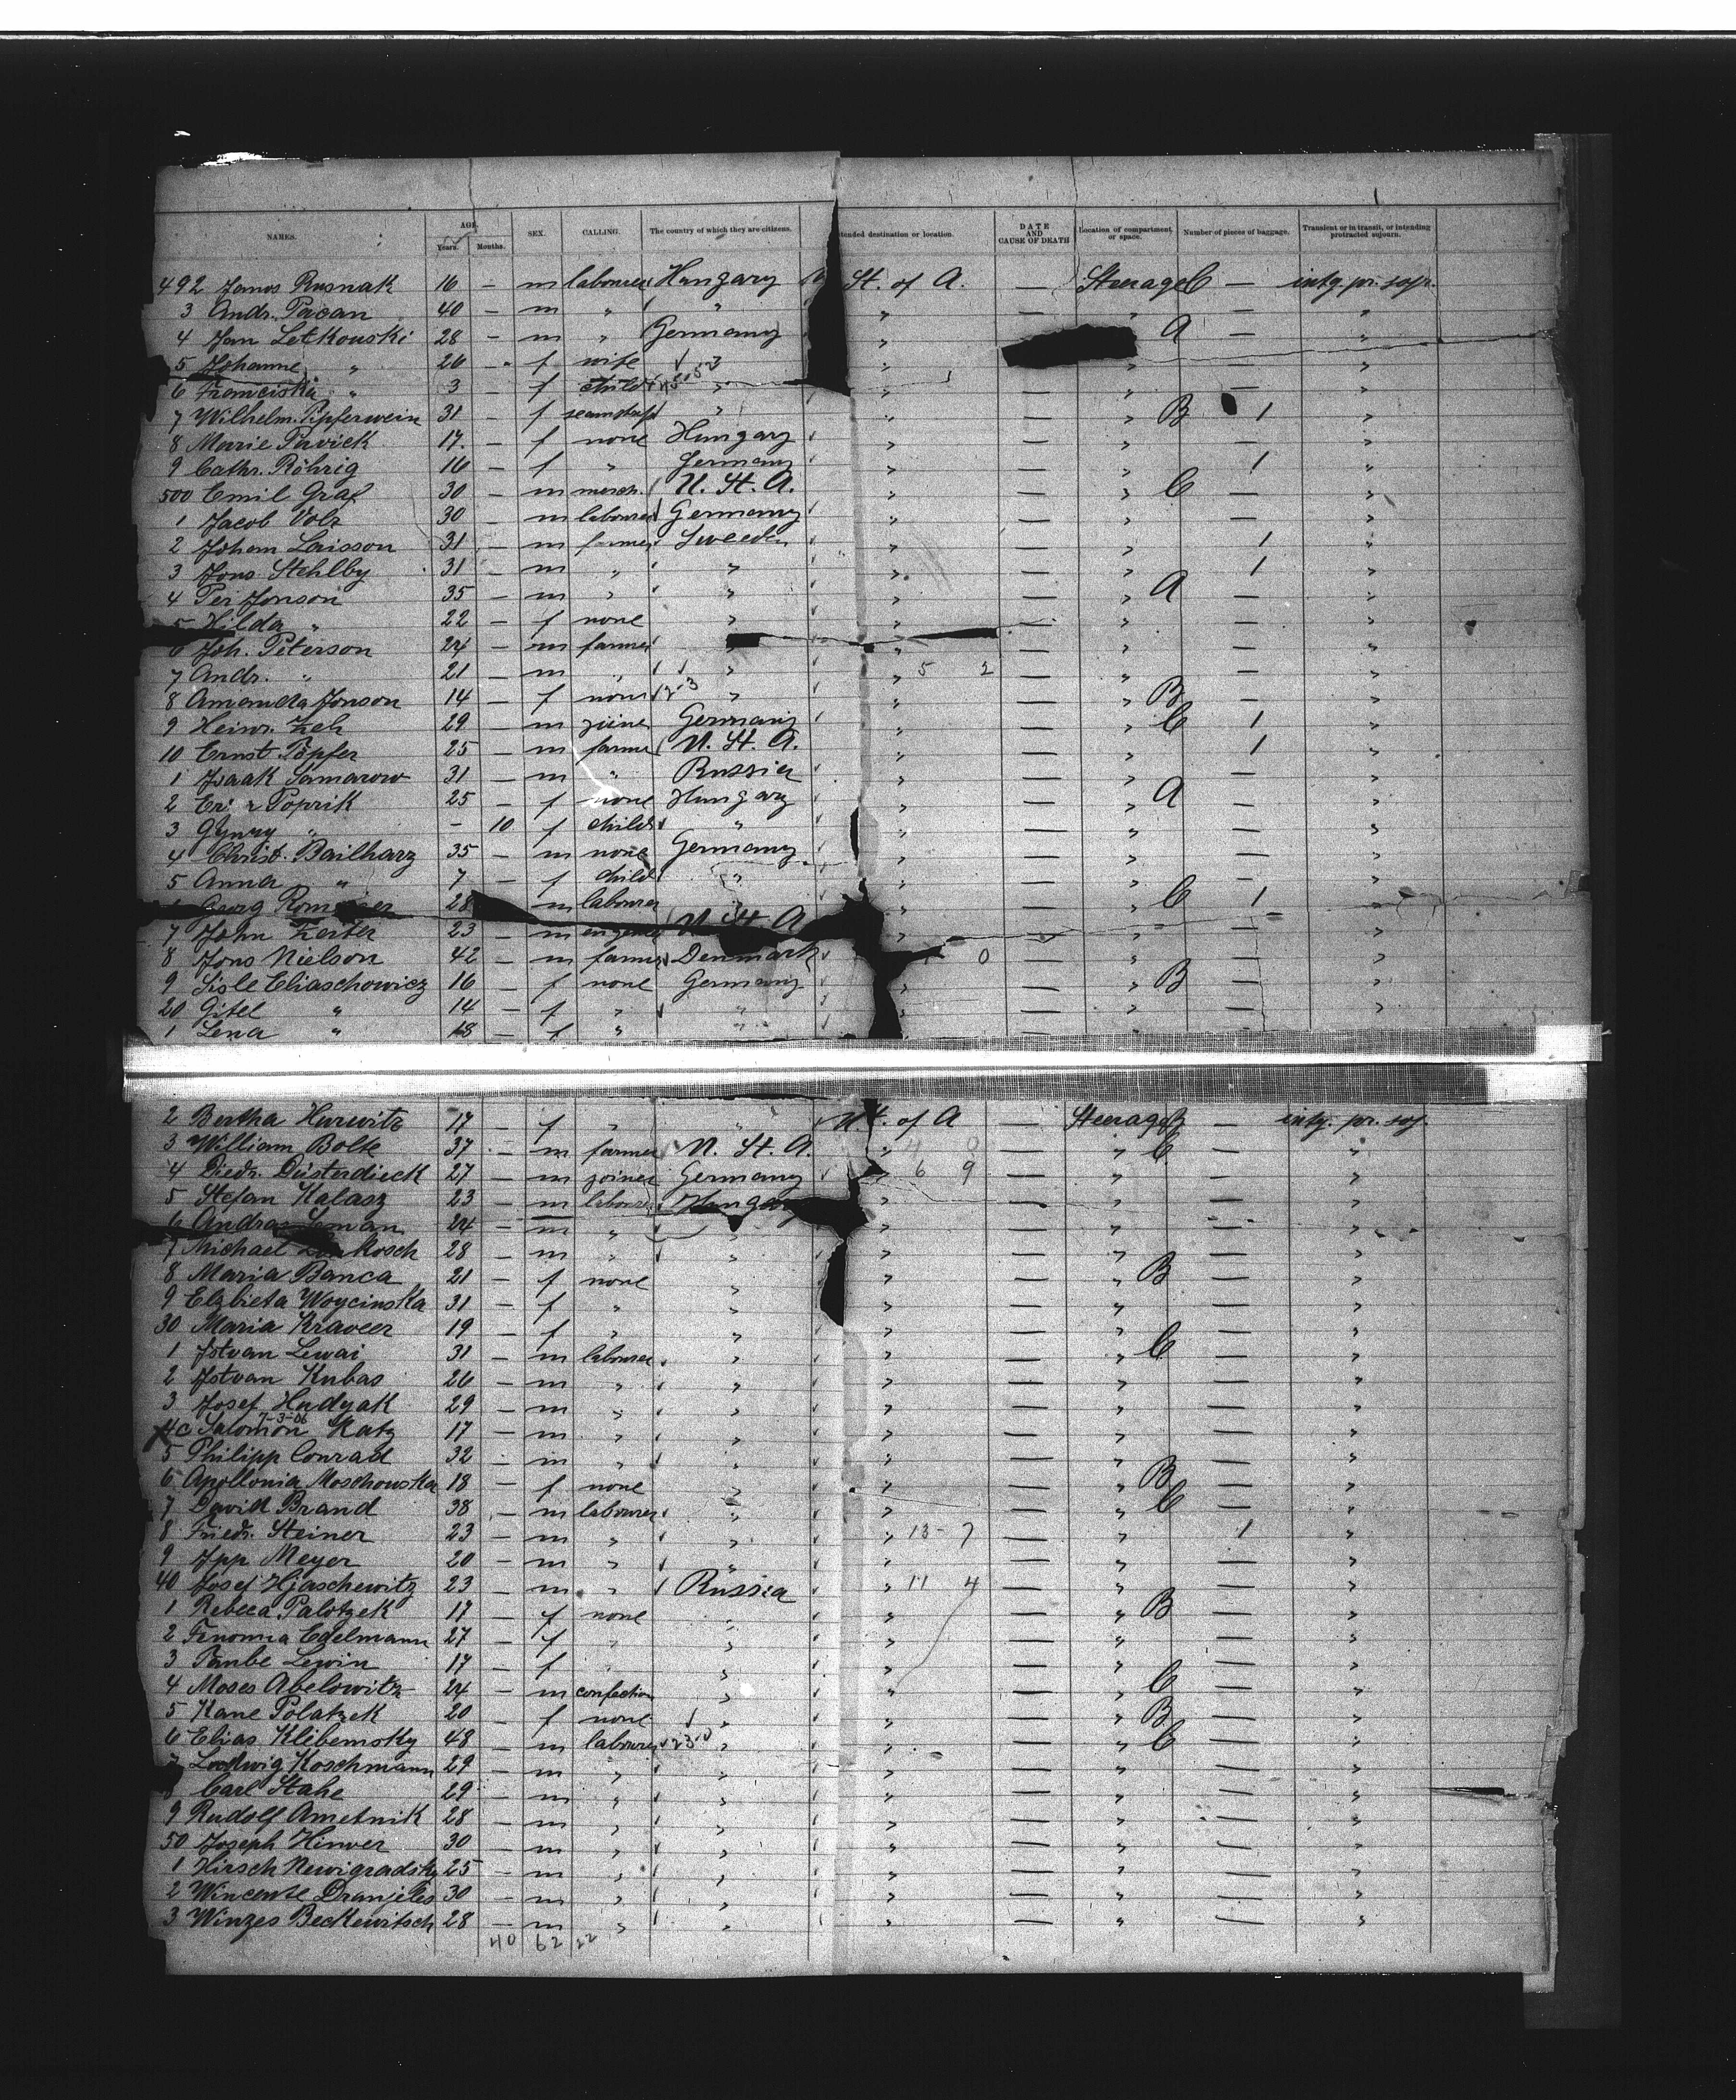 NAMES. AGE. Years. Months. SEX. CALLING. The country of which they are citizens. Intended destination or location. DATE AND CAUSE OF DEATH Location of compartment or space. Number of pieces of baggage. Transient or in transit, or intending protracted sojourn.
492 Janos Rusnak 16 — m labourer Hungary St. of A. — Steerage C — intg. pr. sojr.
3 Andr. Pacan 40 — m " " " — " — "
4 Jan Letkouski 28 — m " Germany " A — "
5 Johanne " 26 — f wife " — "
6 Franciska " 3 — f child " " — " — "
7 Wilhelm. Pipferwein 31 — f " " — " B 1 "
8 Marie Pavick 17 — f none Hungary " — " — "
9 Cathr. Röhrig 16 — f " Germany " — " 1 "
500 Emil Graf 30 — m merch. U. St. A. " — " C — "
1 Jacob Volz 30 — m labourer Germany " — " — "
2 Johan Laisson 31 — m farmer Sweeden " — " 1 "
3 Jons Stehlby 31 — m " " " — " 1 "
4 Per Jonson 35 — m " " " — " A — "
5 Hilda " 22 — f none " " — " — "
6 Joh. Peterson 24 — m farmer " — " — "
7 Andr. " 21 — m " " " 5 2 — " — "
8 Amanda Jonson 14 — f none 2-3 " " — " B — "
9 Heinr. Zeh 29 — m joiner Germany " — " C 1 "
10 Ernst Töpfer 25 — m farmer U. St. A. " — " 1 "
1 Isaak Samarow 31 — m " Russia " — " — "
2 Poprik 25 — f none Hungary " — " A — "
3 " — 10 f child " " — " — "
4 Christ. Bailharz 35 — m none Germany " — " — "
5 Anna " 7 — f child " " — " — "
Georg 28 m labourer " — " C 1 "
7 John Zester 23 — m U. St. A. " — " — "
8 Jons Nielson 42 — m farmer Denmark 0 — " — "
9 Sisle Eliaschowicz 16 — f none Germany " — " B — "
20 Gitel " 14 — f " " " — " — "
1 Lena " 18 — f " "
2 Bertha Hurwitz 17 — f " " St. of A — Steerage — intg. pr. soj.
3 William Bolte 37 — m farmer U. St. A. " — " C — "
4 Diedr. Düsterdieck 27 — m joiner Germany " 6 9 — " — "
5 Stefan Kalasz 23 — m labourer Hungary " — " — "
6 Andras 24 — m " " " — " — "
7 Michael 28 — m " " " — " — "
8 Maria Banca 21 — f none " " — " B — "
9 Elzbieta Woycinska 31 — f " " " — " — "
30 Maria Kraveer 19 — f " " " — " — "
1 Istvan Lewai 31 — m labourer " " — " C — "
2 Istvan Kubas 26 — m " " " — " — "
3 Josef Hudyak 29 — m " " " — " — "
7-3-06
4 Salomon Katz 17 — m " " " — " — "
5 Philipp Conrad 32 — m " " " — " — "
6 Apollonia Moschowska 18 — f none " " — " B — "
7 David Brand 38 — m labourer " " — " C — "
8 Friedr. Steiner 23 — m " " " 13-7 — " 1 "
9 Ipp Meyer 20 — m " " " — " — "
40 Josef Hjaschewitz 23 — m " Russia " 11 4 — " — "
1 Rebeca Palotzek 17 — f none " " — " B — "
2 Edelmann 27 — f " " " — " — "
3 Taube Lewin 17 — f " " " — " — "
4 Moses Abelowitz 24 — m confection " " — " C — "
5 Hane Polatzek 20 — f none " " — " B — "
6 Elias Klibemsky 48 — m labourer " " — " C — "
7 Lodwig Koschmann 29 — m " " " — " — "
8 Carl Stahe 29 — m " " " — " — "
9 Rudolf Ametnik 28 — m " " " — " — "
50 Joseph Hinver 30 — m " " " — " — "
1 Hirsch Newigradsky 25 — m " " " — " — "
2 Wincente Dranjeles 30 — m " " " — " — "
3 Winzes Beckewitsch 28 — m " " " — " — "
40 62 22